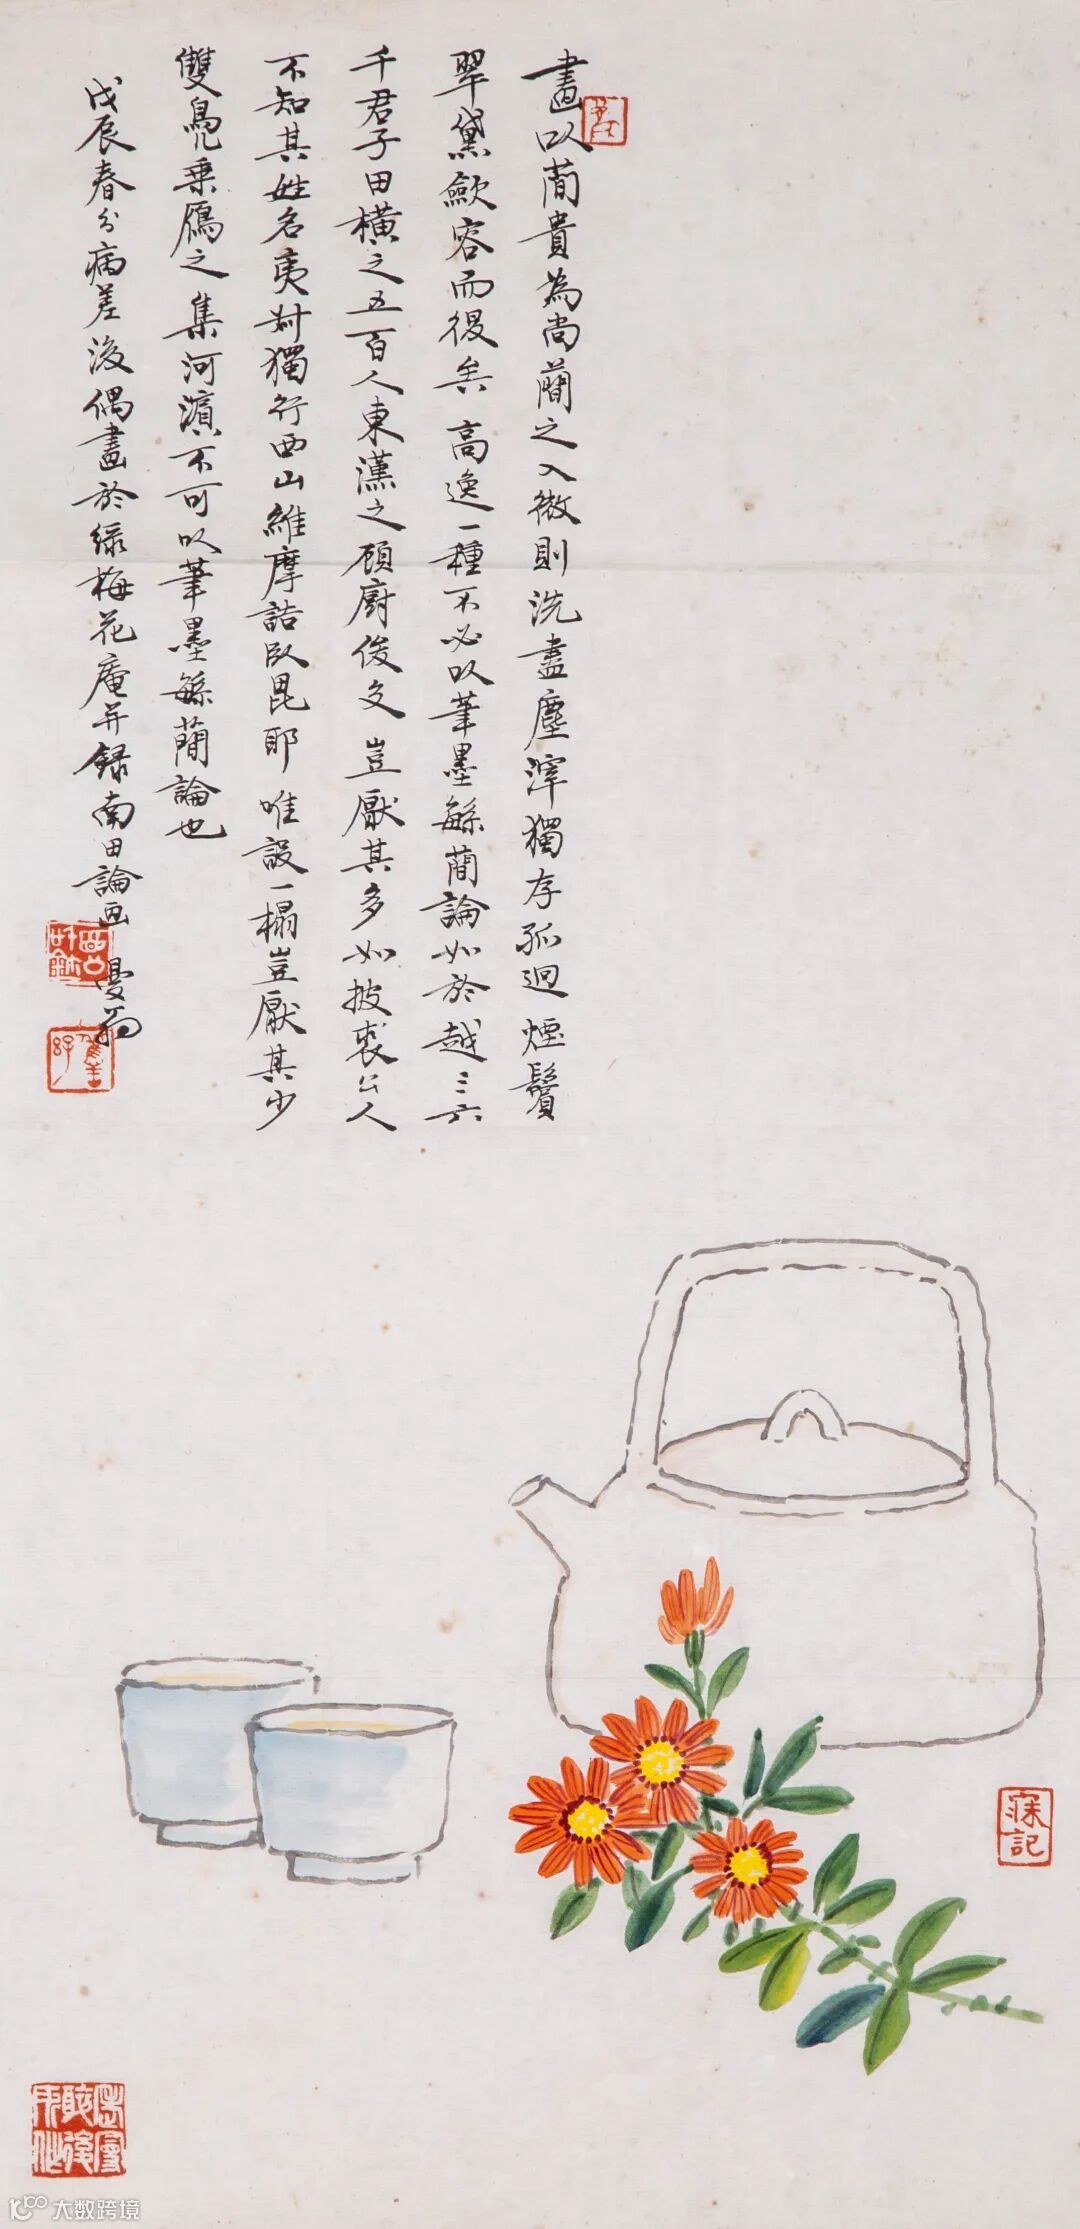 畫以簡貴為尚簡之入微則洗盡塵滓獨存孤迥煙鬟
翠黛歛容而退矣高逸一種不必以筆墨緐簡論如於越之六
千君子田橫之五百人東漢之顧廚俊及豈厭其多如披裘公人
不知其姓名夷叔獨行西山維摩詰臥毘耶唯設一榻豈厭其少
雙鳧乘鴈之集河濱不可以筆墨緐簡論也
戊辰春分病差後偶畫於綠梅花庵并錄南田論画 曼翁
大数跨境